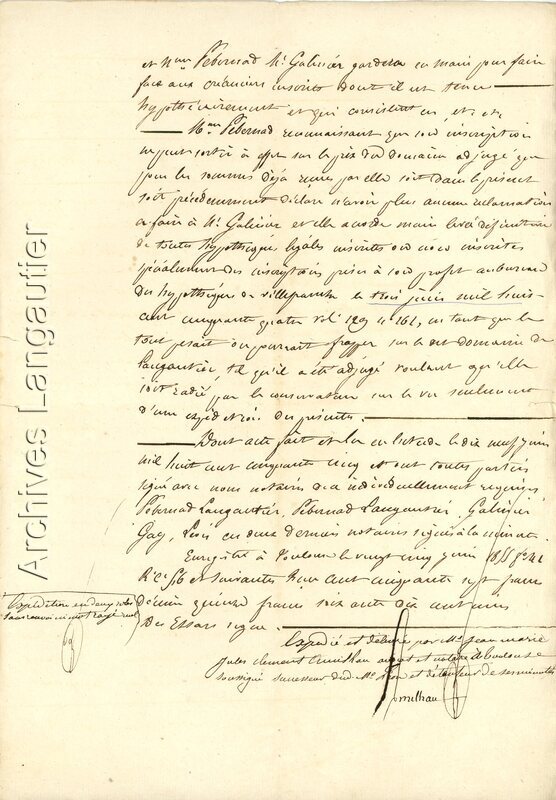 et Mme Pebernad Mr Galinier gardera en main pour faire
face aux créanciers inscrits dont il est tenu
hypothécairement et qui consistent en, etc etc
Mme Pebernad reconnaissant que son inscription
ne peut sortir à effet sur le prix du domaine adjugé que
pour les sommes déjà reçues par elle soit dans le présent
soit précédemment déclare n'avoir plus aucune réclamation
à faire à Mr Galinier et elle accorde main levée définitive
de toutes hypothèques légales inscrites ou non inscrites
spécialement des inscriptions prises à son profit au bureau
des hypothèques de villefranche le trois juin mil huit
cent cinquante quatre vol. 129 n° 161, en tant que le
tout pesait ou pourrait frapper sur le dit domaine de
Langautier, tel qu'il a été adjugé voulant qu'elle
soit radiée par le conservateur sur le vu seulement
d'une expédition des présentes.
Dont acte fait et lu en l'étude le dix neuf juin
mil huit cent cinquante cinq et ont toutes parties
signé avec nous notaires de ce individuellement requis,
Pebernad Langautier, Pebernad Langautier, Galinier
Gay, ce deux derniers notaires signés à la minute.
Enregistré à Toulouse le vingt cinq juin 1855 f° 41
R° c. 56 et suivantes Reçu cent cinquante sept francs
décime quinze francs soixante dix centimes
Des Essars signé.
Expédition en deux rôles
sans renvoi ni mot rayé nul
Expédié et délivré par Me Jean marie
Jules clement Amilhau avocat et notaire à Toulouse
soussigné successeur dud. Me et détenteur de ses minutes
Amilhau
Archives Langautier